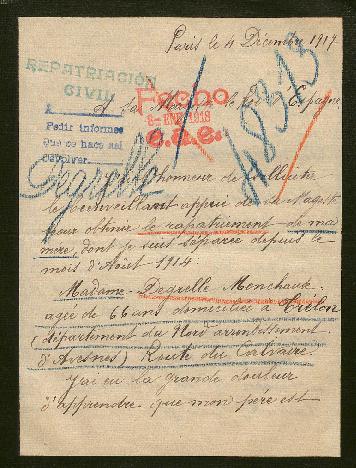 Paris le 4 Décembre 1917
REPATRIACIÓN
CIVIL
A Sa Majesté le Roi d'Espagne
Fecho
8-ENE 1918
c.a.e.
Pedir informes
que se hace así
devolver.
Degrelle
l'honneur de solliciter
le bienveillant appui de sa Majesté
pour obtenir le rapatriement de ma
mère, dont je suis séparée depuis le
mois d'Août 1914.
Madame Degrelle Monchaux
agée de 66 ans domiciliée à Trélon
(département du Nord arrondissement
d'Avesnes) Route du Calvaire.
J'ai eu la grande douleur
d'apprendre que mon père est